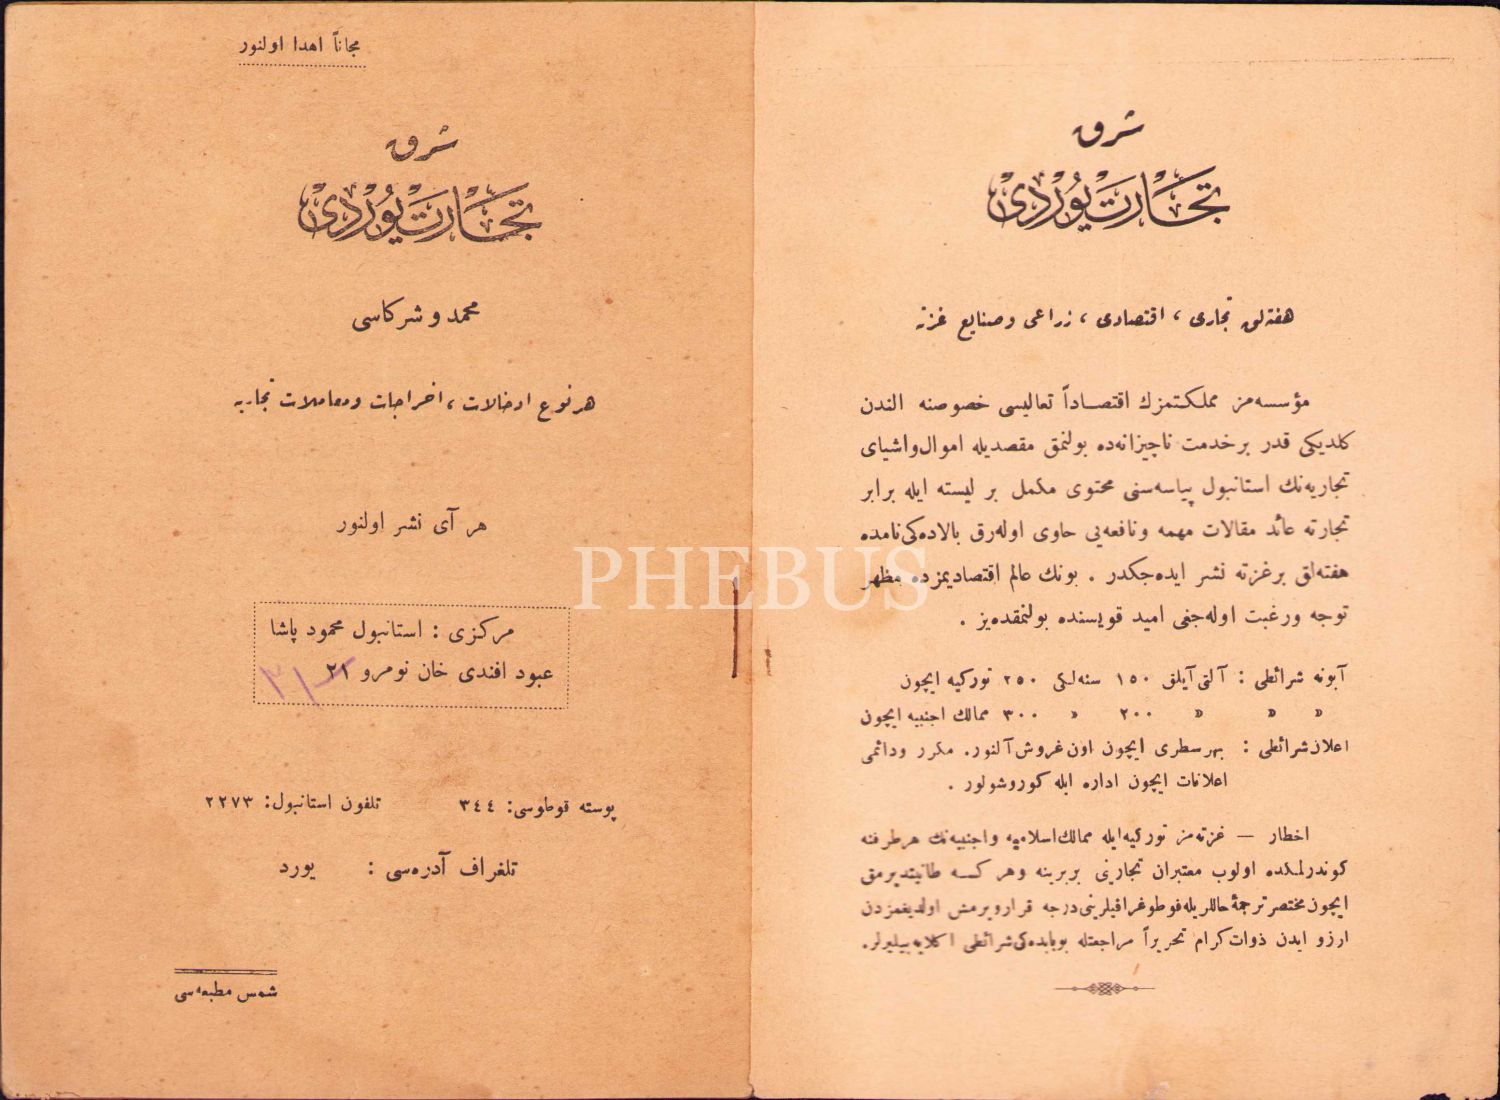 مجاناً اهدا اولنور
شرق
تجارت يوردى
محمد و شركاسى
هر نوع ادخالات، اخراجات و معاملات تجاريه
هر آى نشر اولنور
مركزى : استانبول محمود پاشا
عبود افندى خان نومرو ٢١
٣١
پوسته قوطوسى: ٣٤٤ تلفون استانبول: ٢٢٧٣
تلغراف آدره‌سى : يورد
شمس مطبعه‌سى
شرق
تجارت يوردى
هفته‌لق تجارى ، اقتصادى ، زراعى و صنايع غزته
مؤسسه‌مز مملكتمزك اقتصاداً تعاليسى خصوصنه الندن
كلديكى قدر بر خدمت ناچيزانه‌ده بولنمق مقصديله اموال و اشياى
تجاريه‌نك استانبول پياسه‌سنى محتوى مكمل بر ليسته ايله برابر
تجارته عائد مقالات مهمه و نافعه‌يى حاوى اوله‌رق بالاده‌كى نامده
هفته‌لق بر غزته نشر ايده‌جكدر . بونك عالم اقتصاديمزده مظهر
توجه و رغبت اوله‌جغى اميد قويسنده بولنمقده‌يز .
آبونه شرائطى : آلتى آيلق ١٥٠ سنه‌لكى ٢٥٠ توركيه ايچون
» » » ٢٠٠ » ٣٠٠ ممالك اجنبيه ايچون
اعلان شرائطى : بهر سطرى ايچون اون غروش آلنور. مكرر و دائمى
اعلانات ايچون اداره ايله كوروشولور .
اخطار — غزته‌مز توركيه ايله ممالك اسلاميه و اجنبيه‌نك هر طرفنه
كوندرلمكده اولوب معتبران تجارينى بربرينه و هر كسه طانيتديرمق
ايچون مختصر ترجمهٔ حاللريله فوطوغرافيلرينى درجه قرار ويرمش اولديغمزدن
ارزو ايدن ذوات كرام تحريراً مراجعتله بوبابده‌كى شرائطى اكلايه‌بيليرلر.
PHEBUS